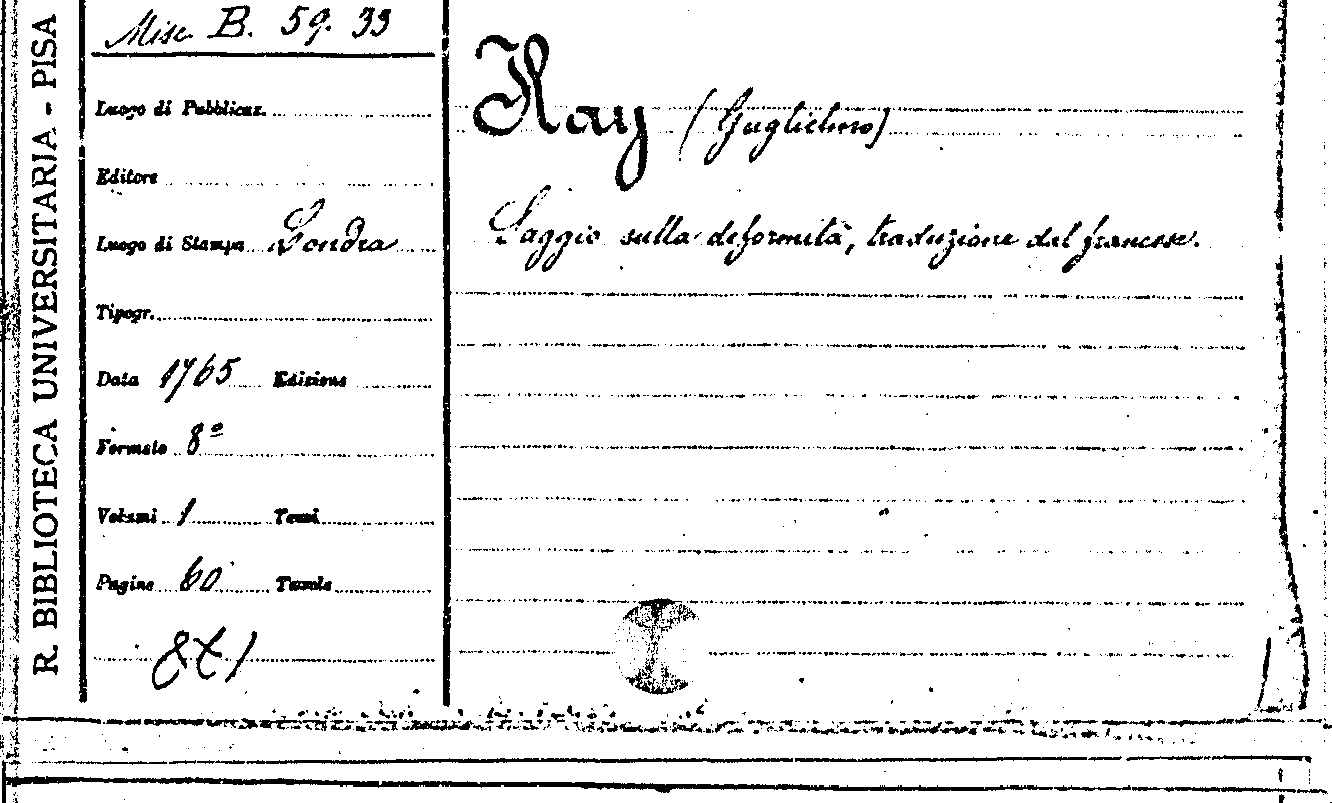 R. BIBLIOTECA UNIVERSITARIA - PISA
Misc. B. 59. 33
Luogo di Pubblicaz.
Editore
Luogo di Stampa Londra
Tipogr.
Data 1765 Edizione
Formato 8º
Volumi 1 Tomi
Pagine 60 Tavole
Hay (Guglielmo)
Saggio sulla deformità, traduzione dal francese.